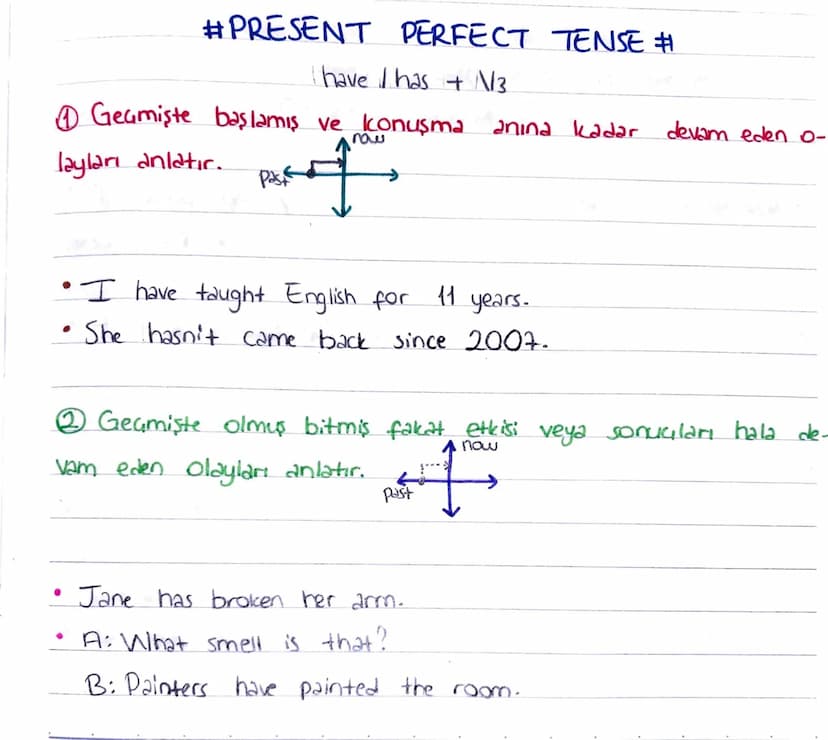 #PRESENT PERFECT TENSE#
have / has + V3
① Geçmişte başlamış ve konuşma anına kadar devam eden o-
now
layları anlatır.
past
• I have taught English for 11 years.
• She hasn't came back since 2007.
② Geçmişte olmuş bitmiş fakat etkisi veya sonuçları hala de-
now
vam eden olayları anlatır.
past
• Jane has broken her arm.
• A: What smell is that?
B: Painters have painted the room.